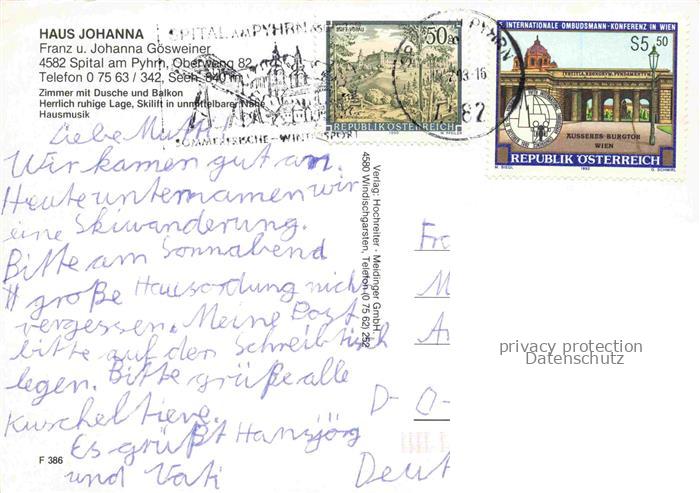 HAUS JOHANNA
Franz u. Johanna Gösweiner
4582 Spital am Pyhrn, Oberweng 82
Telefon 0 75 63 / 342, Seeh. 840 m
Zimmer mit Dusche und Balkon
Herrlich ruhige Lage, Skilift in unmittelbarer Nähe
Hausmusik
SPITAL AM PYHRN
SOMMERFRISCHE - WINTERSPORT
50 g
REPUBLIK ÖSTERREICH
PYHRN
INTERNATIONALE OMBUDSMANN-KONFERENZ IN WIEN
S5,50
ÄUSSERES BURGTOR
WIEN
REPUBLIK ÖSTERREICH
1992
Liebe Mutti!
Wir kamen gut an.
Heute unternamen wir
eine Skiwanderung.
Bitte am Sonnabend
große Hausordung nicht
vergessen. Meine Post
bitte auf den Schreibtisch
legen. Bitte grüße alle
Kuscheltiere.
Es grüßt Hansjörg
und Vati
F 386
Verlag: Hochreiter - Meidinger GmbH.
4580 Windischgarsten, Telefon (0 75 62) 252
Fr
M
A
D- O-
Deut
privacy protection
Datenschutz